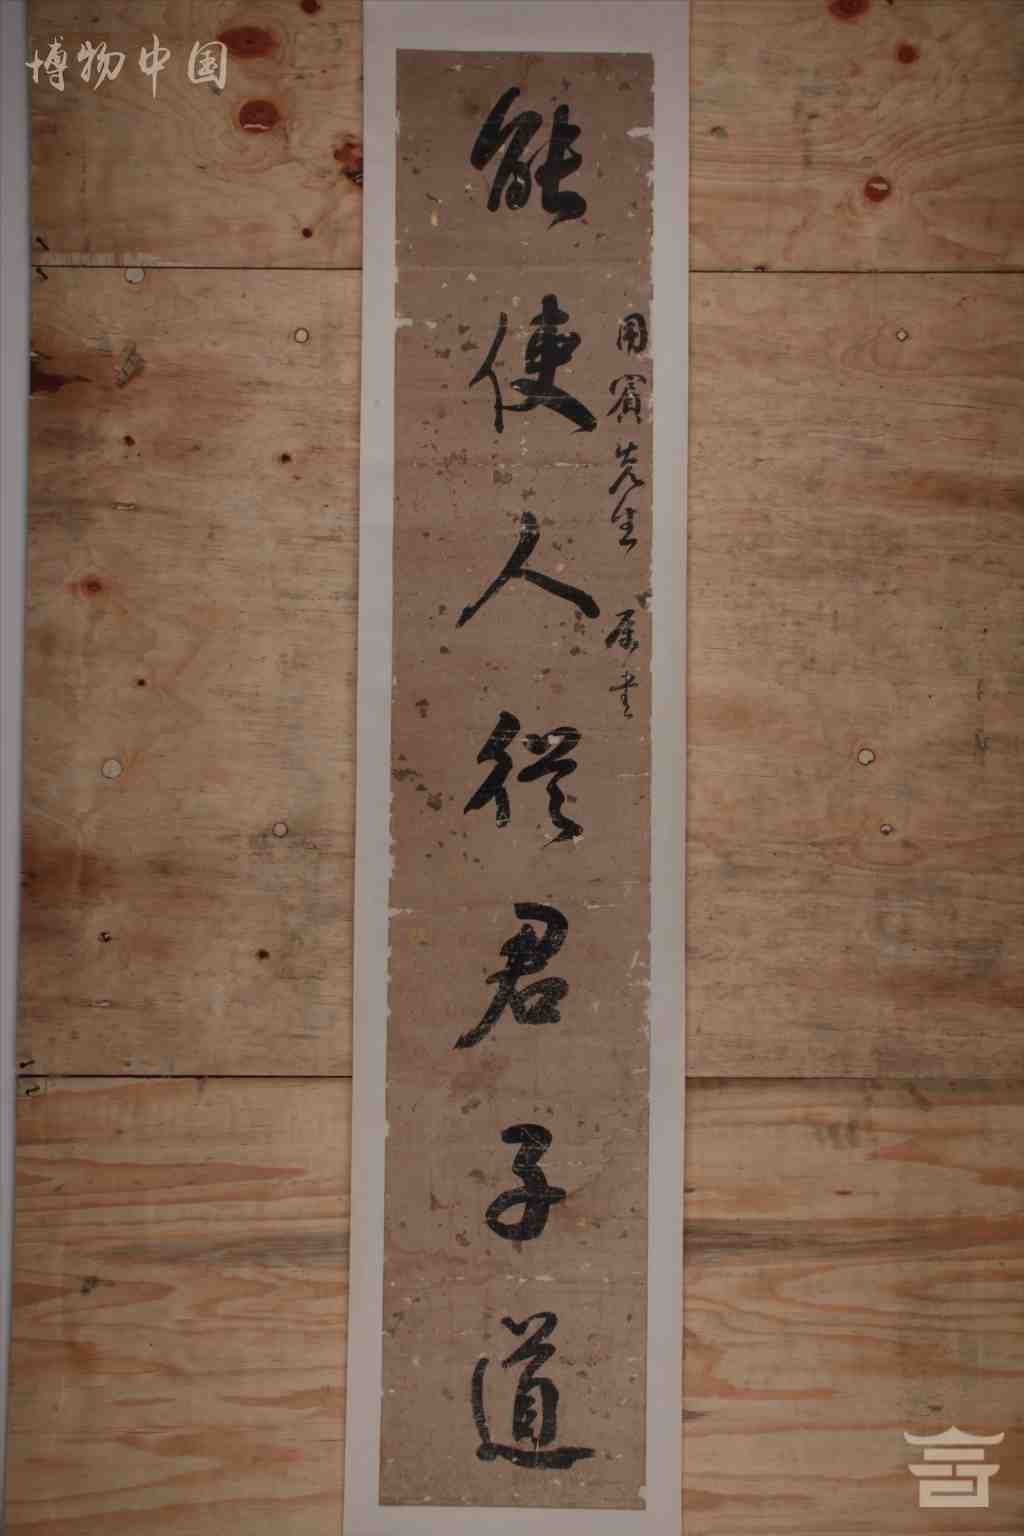 博物中国
能使人從君子道
用賓先生 屬書